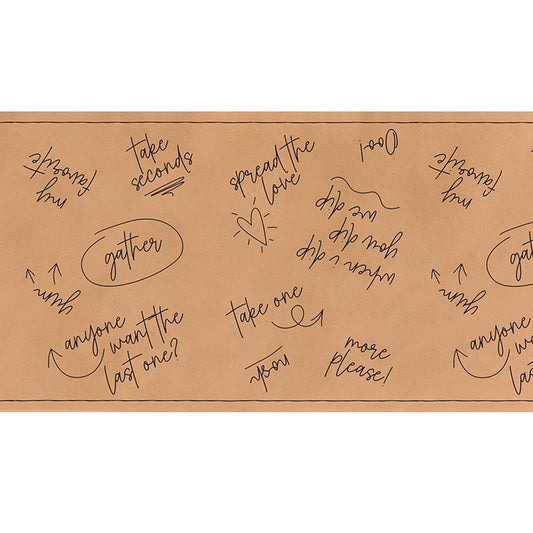 my
favorite
take
seconds
spread the
love
Ooo!
my
favorite
gather
when i dip
you dip
we dip
gat
yum
take one
yum
anyone
want the
last one?
nosh
more
please!
anyone
wa
las